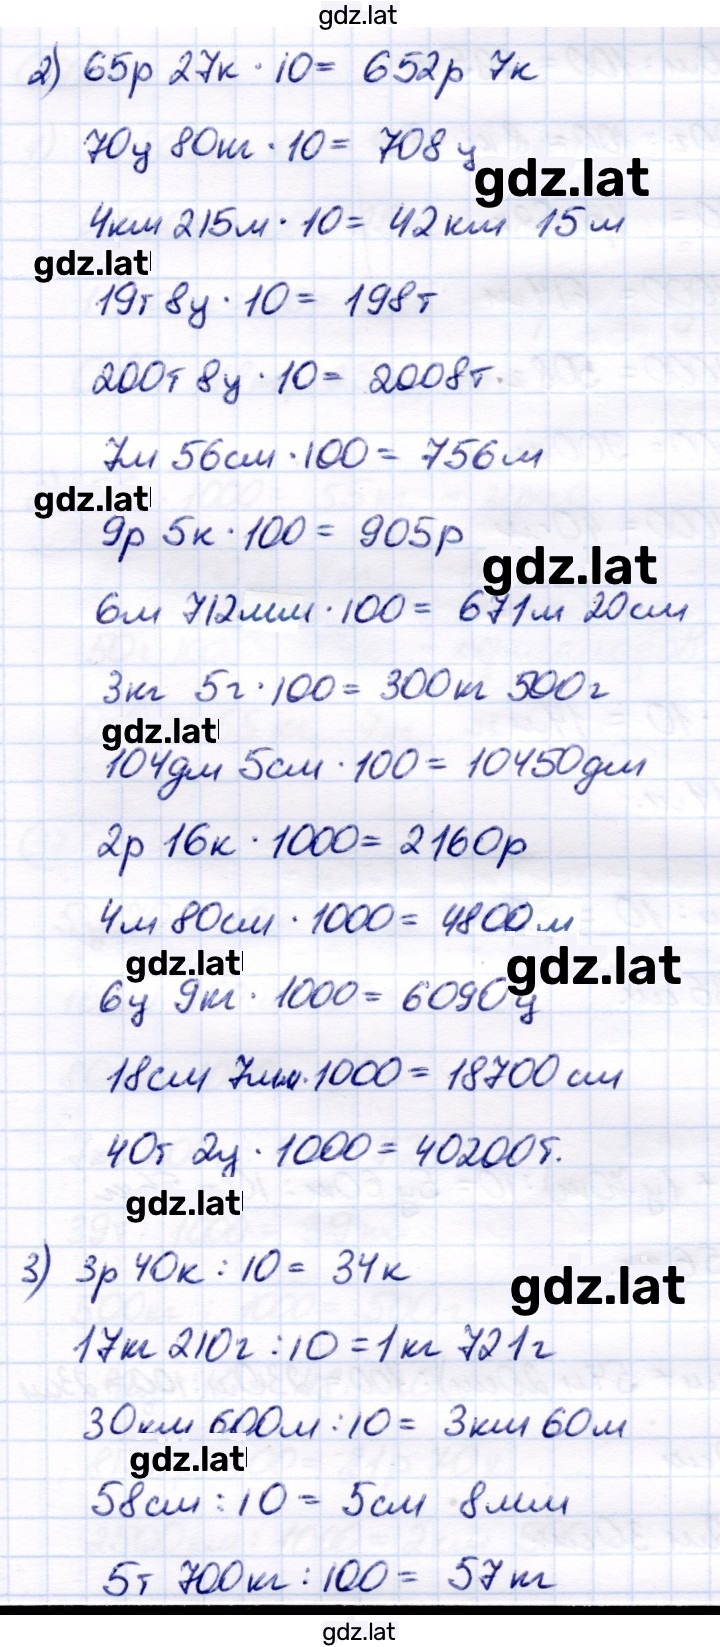 gdz.lat
2) 65р 27к · 10 = 652р 7к
70ц 80кг · 10 = 708 ц
gdz.lat
4км 215м · 10 = 42км 15м
gdz.lat
19т 8ц · 10 = 198т
200т 8ц · 10 = 2008т.
7м 56см · 100 = 756м
gdz.lat
9р 5к · 100 = 905р
gdz.lat
6м 712мм · 100 = 671м 20см
3кг 5г · 100 = 300кг 500г
gdz.lat
104дм 5см · 100 = 10450дм
2р 16к · 1000 = 2160р
4м 80см · 1000 = 4800м
gdz.lat
gdz.lat
6ц 9кг · 1000 = 6090ц
18см 7мм · 1000 = 18700см
40т 2ц · 1000 = 40200т.
gdz.lat
3) 3р 40к : 10 = 34к
gdz.lat
17кг 210г : 10 = 1кг 721г
30км 600м : 10 = 3км 60м
gdz.lat
58см : 10 = 5см 8мм
5т 700кг : 100 = 57кг
gdz.lat